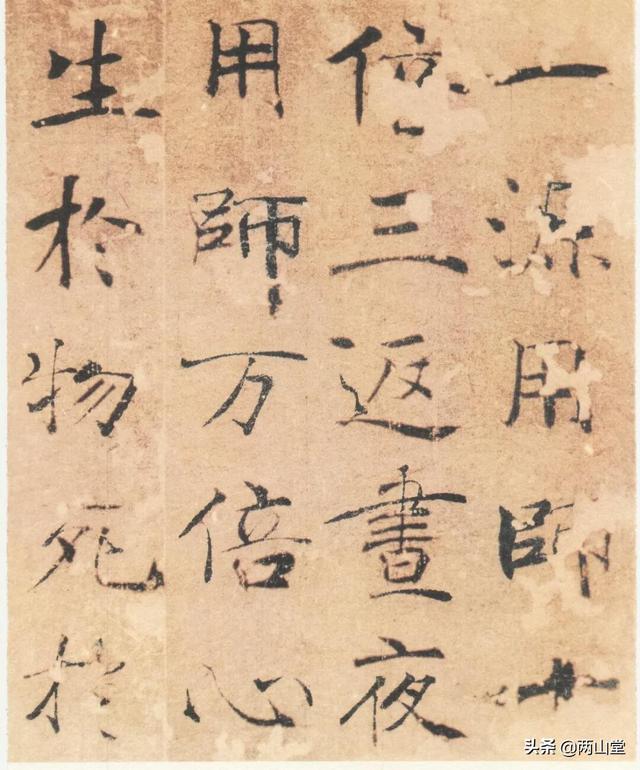 一源用師十
倍三返晝夜
用師万倍心
生於物死於
头条 @两山堂